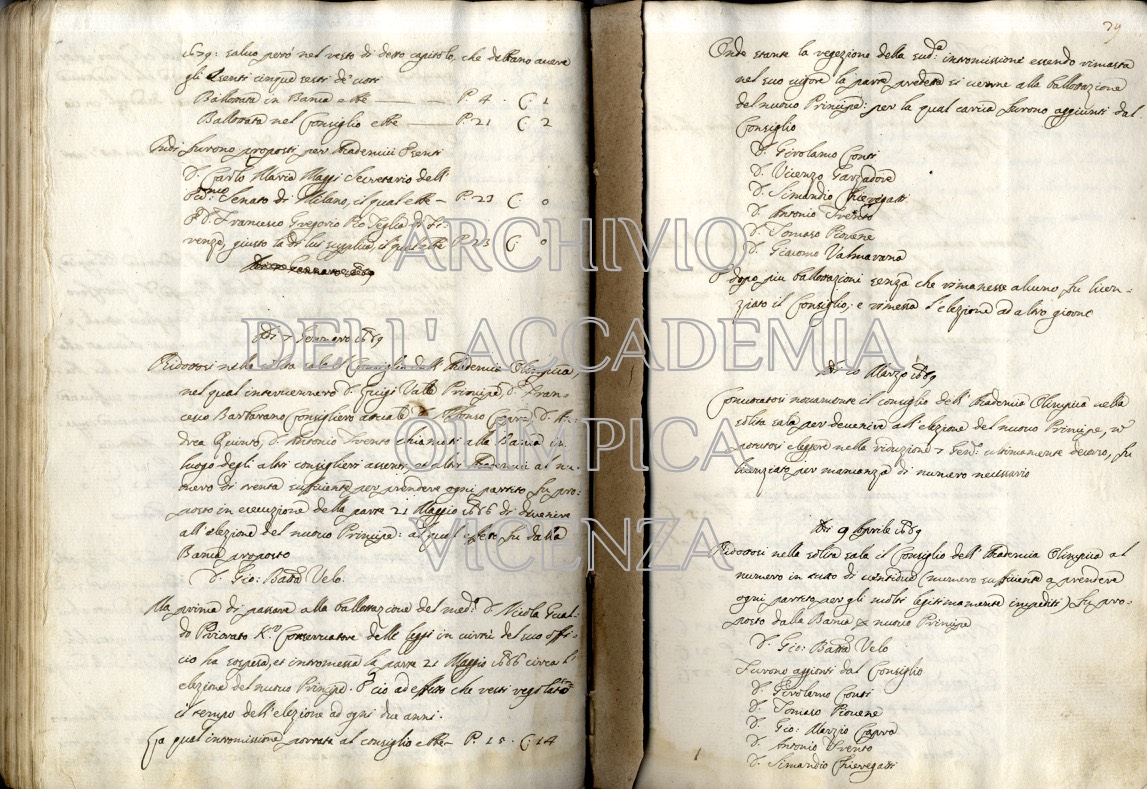 1679: salvo però nel resto di detto capitolo, che debbano avere
gli Assenti cinque sesti de voti
Ballottata in Banca ebbe — P. 4 · C. 1
Ballottata nel Consiglio ebbe — P. 21 C. 2
Indi furono proposti per Academici Assenti
D. Carlo Maria Maggi Secretario dell'
Senato di Milano, il qual ebbe — P. 23 C. 0
D. Francesco Gregorio Pio Teglia di Fi-
renze, giusto la di lui supplica, il qual ebbe P. 23 C. 0
Adi 7 Gennaro 1689
Ridottosi nella solita sala il Consiglio dell'Academia Olimpica,
nel qual intervennero D. Luigi Valle Principe, D. Fran-
cesco Barbarano Consigliero attuale D. Alfonso Capra, D. An-
drea Quinto, D. Antonio Trento chiamati alla Banca in
luogo degli altri consiglieri assenti, et altri Academici al nu-
mero di trenta sufficiente per prendere ogni partito fu pro-
posto in esecuzione della parte 21 Maggio 1686 di devenire
all'elezione del nuovo Principe: al qual effetto fu dalla
Banca proposto
D. Gio: Batta Velo.
Ma prima di passare alla ballottazione del med.º D. Nicola Gual-
do Priorato K.r Conservatore delle leggi in virtù del suo offi-
cio ha sospesa, et intromessa la parte 21 Maggio 1686 circa l'
elezione del nuovo Principe. E ciò ad effetto che resti regolato
il tempo dell'elezione ad ogni due anni.
La qual intromissione portata al consiglio ebbe — P. 15 · C. 14
79
Onde stante la regezione della sud.a intromissione essendo rimasta
nel suo vigore la parte predetta si venne alla ballottazione
del nuovo Principe: per la qual carica furono aggiunti dal
Consiglio
D. Girolamo Conti
D. Vicenzo Garzadore
D. Simandio Chieregatti
D. Antonio Trento
D. Tomaso Piovene
D. Giacomo Valmarana
E dopo più ballottazioni senza che rimanesse alcuno fu licen-
ziato il Consiglio; e rimessa l'elezione ad altro giorno
Adi 20 Marzo 1689
Convocatosi novamente il consiglio dell'Academia Olimpica nella
solita sala per devenire all'elezione del nuovo Principe, nō
potutosi eleggere nella riduzione 7 Gen.º ultimamente decorso, fu
licenziato per mancanza di numero necessario
Adi 9 Aprile 1689
Ridottosi nella solita sala il Consiglio dell'Academia Olimpica al
numero in tutto di ventidue (numero sufficiente a prendere
ogni partito per gli molti legitimamente impediti) fu pro-
posto dalla Banca p nuovo Principe
D. Gio: Batta Velo
Furono aggionti dal Consiglio
D. Girolamo Conti
D. Tomaso Piovene
D. Gio: Marzio Capra
D. Antonio Trento
D. Simandio Chieregatti
ARCHIVIO
DELL'ACCADEMIA
OLIMPICA
VICENZA